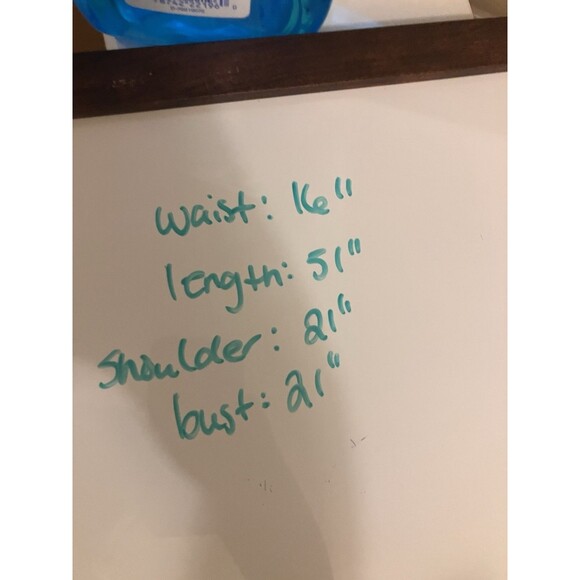 waist: 16"
length: 51"
shoulder: 21"
bust: 21"